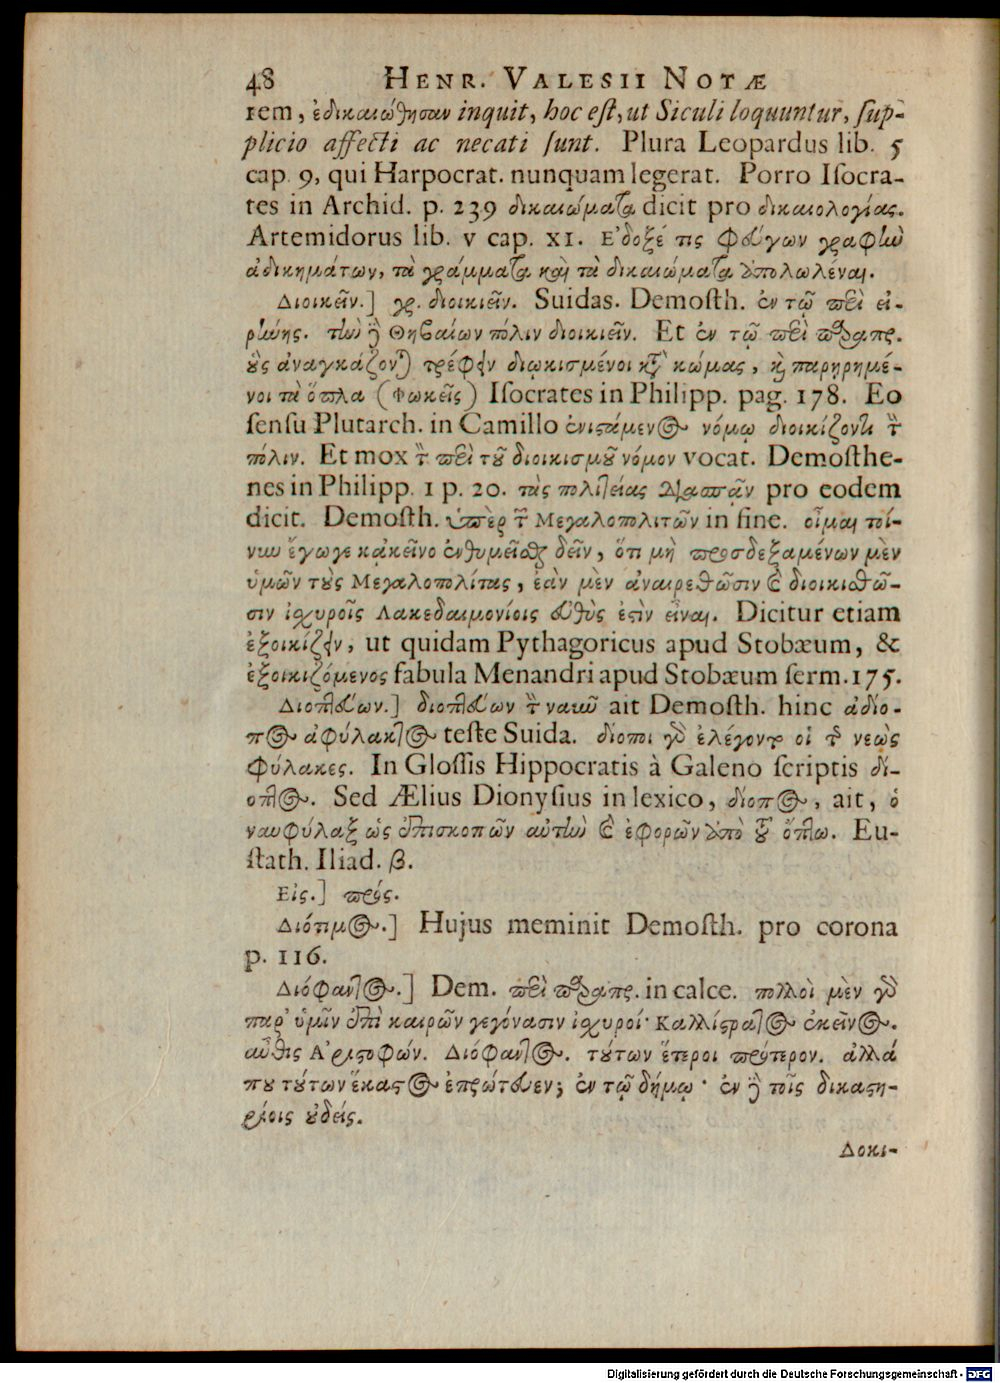 48 HENR. VALESII NOTÆ
rem, ἐδικαιώθησαν inquit, hoc eſt, ut Siculi loquuntur, ſup-
plicio affecti ac necati ſunt. Plura Leopardus lib. 5
cap. 9, qui Harpocrat. nunquam legerat. Porro Iſocra-
tes in Archid. p. 239 δικαιώματα dicit pro δικαιολογίας.
Artemidorus lib. v cap. XI. Ἔδοξέ τις φεύγων γραφὴν
ἀδικημάτων, τὰ γράμματα καὶ τὰ δικαιώματα ἀπολωλέναι.
Διοικεῖν.] γρ. διοικιεῖν. Suidas. Demoſth. ἐν τῷ περὶ εἰ-
ρήνης. τὴν ἢ Θηβαίων πόλιν διοικιεῖν. Et ἐν τῷ περὶ παραπρ.
οὓς ἀναγκάζονται τρέφειν διῳκισμένοι κατὰ κώμας, καὶ παρῃρημέ-
νοι τὰ ὅπλα (Φωκεῖς) Iſocrates in Philipp. pag. 178. Eo
ſenſu Plutarch. in Camillo ἐνιστάμενος νόμῳ διοικίζοντι τὴν
πόλιν. Et mox τὸν περὶ τοῦ διοικισμοῦ νόμον vocat. Demoſthe-
nes in Philipp. I p. 20. τὰς πολιτείας διασπᾶν pro eodem
dicit. Demoſth. ὑπὲρ τῶν Μεγαλοπολιτῶν in fine. οἶμαι τοί-
νυν ἔγωγε κἀκεῖνο ἐνθυμεῖσθαι δεῖν, ὅτι μὴ προσδεξαμένων μὲν
ὑμῶν τοὺς Μεγαλοπολίτας, ἐὰν μὲν ἀναιρεθῶσιν καὶ διοικιθῶ-
σιν ἰσχυροῖς Λακεδαιμονίοις εὐθὺς ἐστὶν εἶναι. Dicitur etiam
ἐξοικίζειν, ut quidam Pythagoricus apud Stobæum, &
ἐξοικιζόμενος fabula Menandri apud Stobæum ſerm. 175.
Διοπτεύων.] διοπτεύων τὴν ναῦν ait Demoſth. hinc ἀδίο-
πος ἀφύλακτος teſte Suida. δίοποι γὰρ ἐλέγοντο οἱ τῆς νεὼς
φύλακες. In Gloſſis Hippocratis à Galeno ſcriptis δί-
οπτος. Sed Ælius Dionyſius in lexico, δίοπος, ait, ὁ
ναυφύλαξ ὡς ἐπισκοπῶν αὐτὴν καὶ ἐφορῶν ἀπὸ τοῦ ὄπτω. Eu-
ſtath. Iliad. β.
Εἰς.] πρός.
Διότιμος.] Hujus meminit Demoſth. pro corona
p. 116.
Διόφαντος.] Dem. περὶ παραπρ. in calce. πολλοὶ μὲν γὰρ
παρ' ὑμῖν ἐπὶ καιρῶν γεγόνασιν ἰσχυροί· Καλλίστρατος ἐκεῖνος.
αὖθις Ἀριστοφών. Διόφαντος. τούτων ἕτεροι πρότερον. ἀλλά
που τούτων ἕκαστος ἐπρώτευεν; ἐν τῷ δήμῳ· ἐν ἢ τοῖς δικαστη-
ρίοις οὐδείς.
Δοκι-
Digitalisierung gefördert durch die Deutsche Forschungsgemeinschaft - DFG